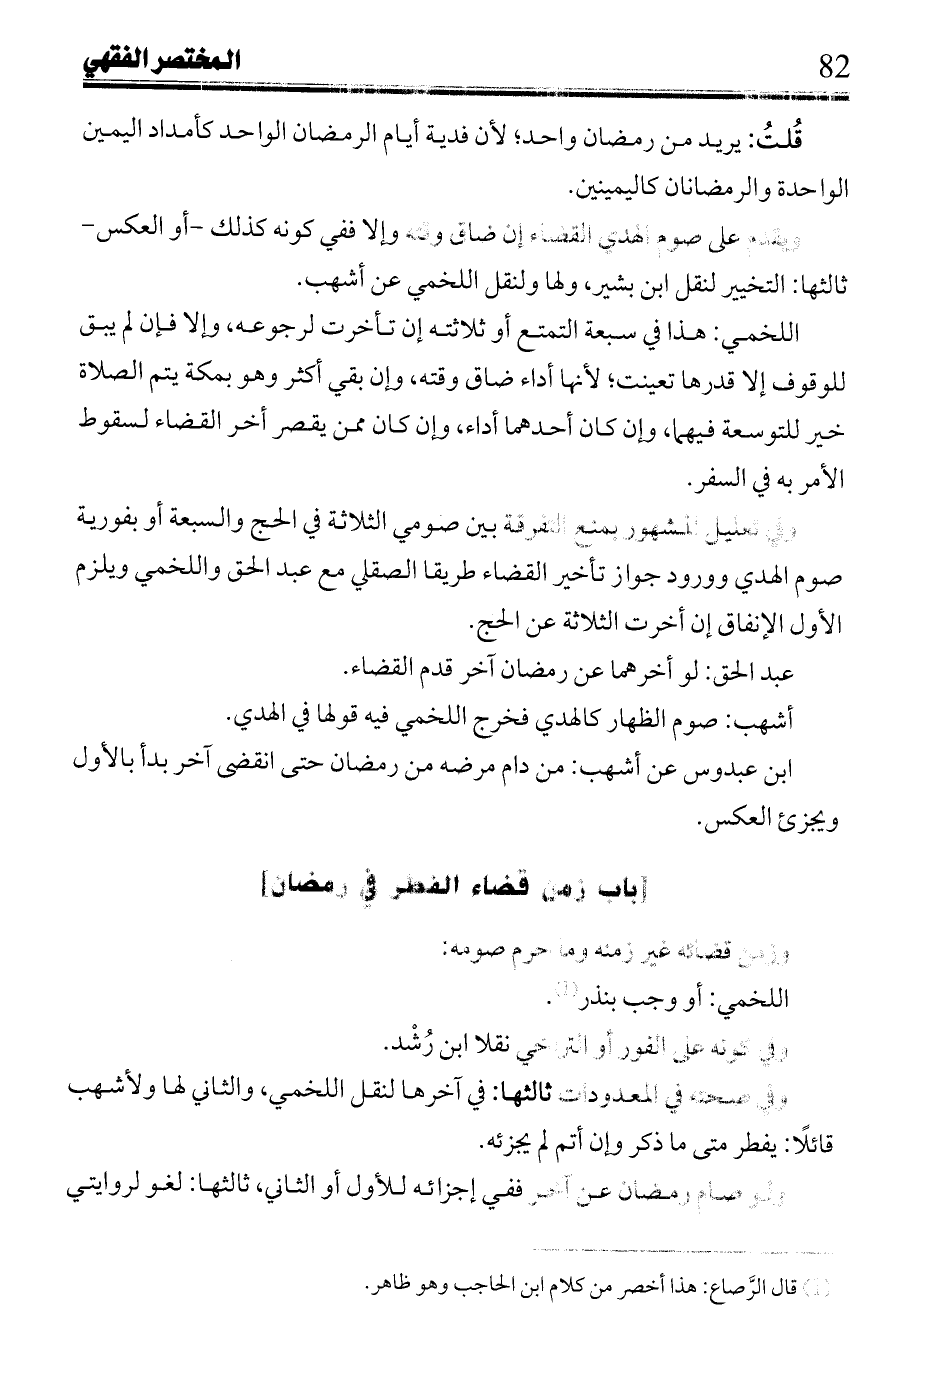 82
المختصر الفقهي
قُلتُ: يريد من رمضان واحد؛ لأن فدية أيام الرمضان الواحد كأمداد اليمين
الواحدة والرمضانان كاليمينين.
ويقدم على صوم الهدي القضاء إن ضاق وقته وإلا ففي كونه كذلك -أو العكس-
ثالثها: التخيير لنقل ابن بشير، ولها ولنقل اللخمي عن أشهب.
اللخمي: هذا في سبعة التمتع أو ثلاثته إن تأخرت لرجوعه، وإلا فإن لم يبق
للوقوف إلا قدرها تعينت؛ لأنها أداء ضاق وقته، وإن بقي أكثر وهو بمكة يتم الصلاة
خير للتوسعة فيهما، وإن كان أحدهما أداء، وإن كان ممن يقصر أخر القضاء لسقوط
الأمر به في السفر.
وفي تعليل المشهور بمنع التفرقة بين صومي الثلاثة في الحج والسبعة أو بفورية
صوم الهدي وورود جواز تأخير القضاء طريقا الصقلي مع عبد الحق واللخمي ويلزم
الأول الإنفاق إن أخرت الثلاثة عن الحج.
عبد الحق: لو أخرهما عن رمضان آخر قدم القضاء.
أشهب: صوم الظهار كالهدي فخرج اللخمي فيه قولها في الهدي.
ابن عبدوس عن أشهب: من دام مرضه من رمضان حتى انقضى آخر بدأ بالأول
ويجزئ العكس.
[باب زمن قضاء الفطر في رمضان]
وزمن قضائه غير زمنه وما حرم صومه:
اللخمي: أو وجب بنذر(1).
وفي كونه على الفور أو التراخي نقلا ابن رُشْد.
وفي صحته في المعدودات ثالثها: في آخرها لنقل اللخمي، والثاني لها ولأشهب
قائلًا: يفطر متى ما ذكر وإن أتم لم يجزئه.
ولو صام رمضان عن آخر ففي إجزائه للأول أو الثاني، ثالثها: لغو لروايتي
(1) قال الرَّصاع: هذا أخصر من كلام ابن الحاجب وهو ظاهر.